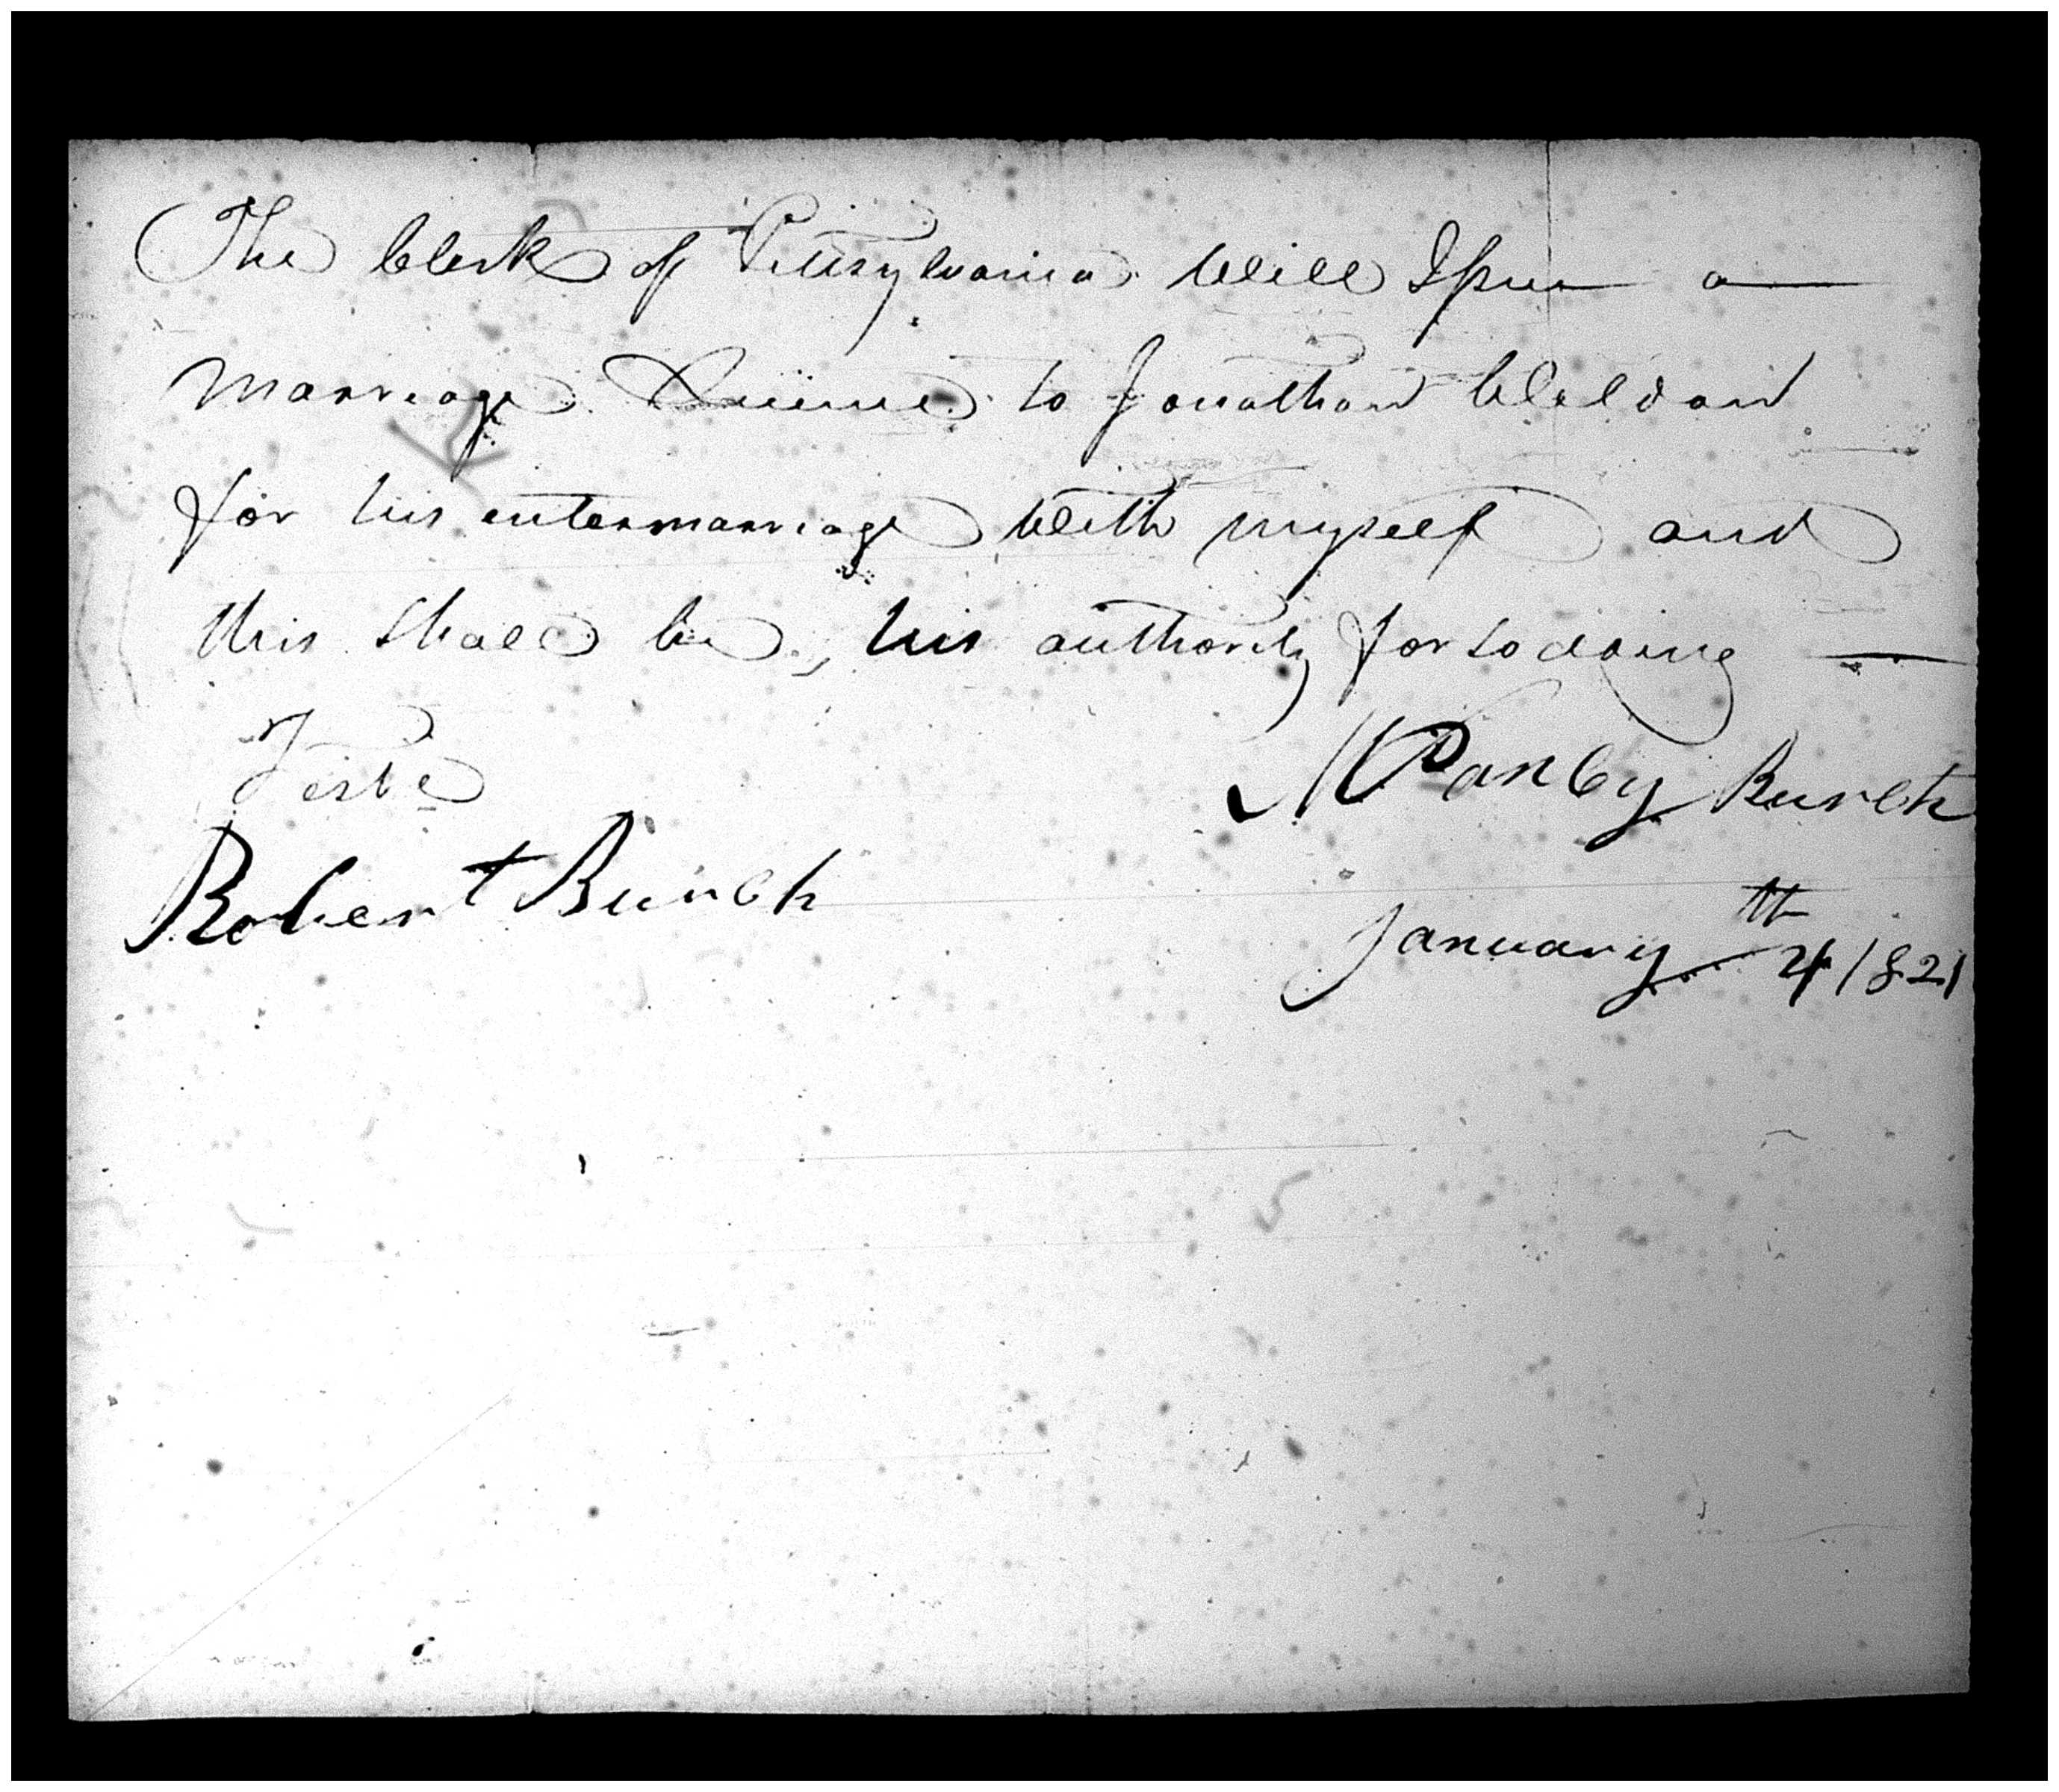 The Clerk of Pittsylvania Will Issue a
Marriage Licence to Jonathan Weldon
for his intermarriage With myself and
this shall be, his authority for so doing
Teste
Nancy Burch
Robert Burch
January 4th 1821